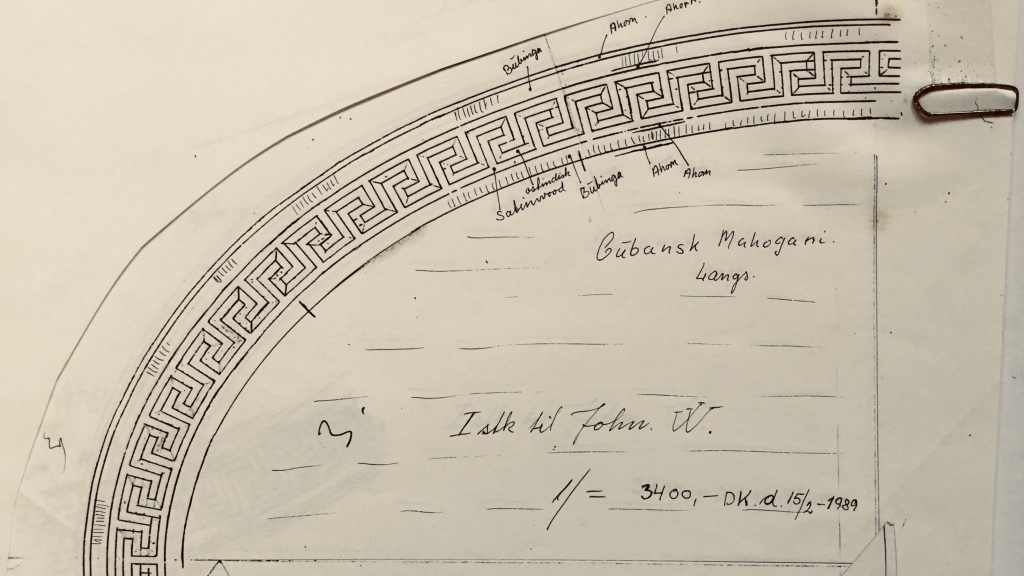 Ahorn.
Ahorn.
Bŭbinga
ostindisk
Satinwood
Bŭbinga
Ahorn
Ahorn
Cŭbansk Mahogani.
Langs.
1 stk til John. W.
1/ = 3400,- DK. d. 15/2-1989